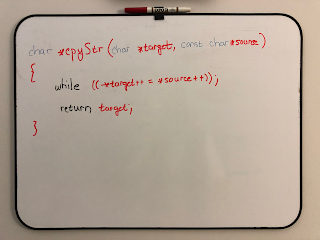 char *cpyStr(char *target, const char*source)
{
while ((*target++ = *source++));
return target;
}